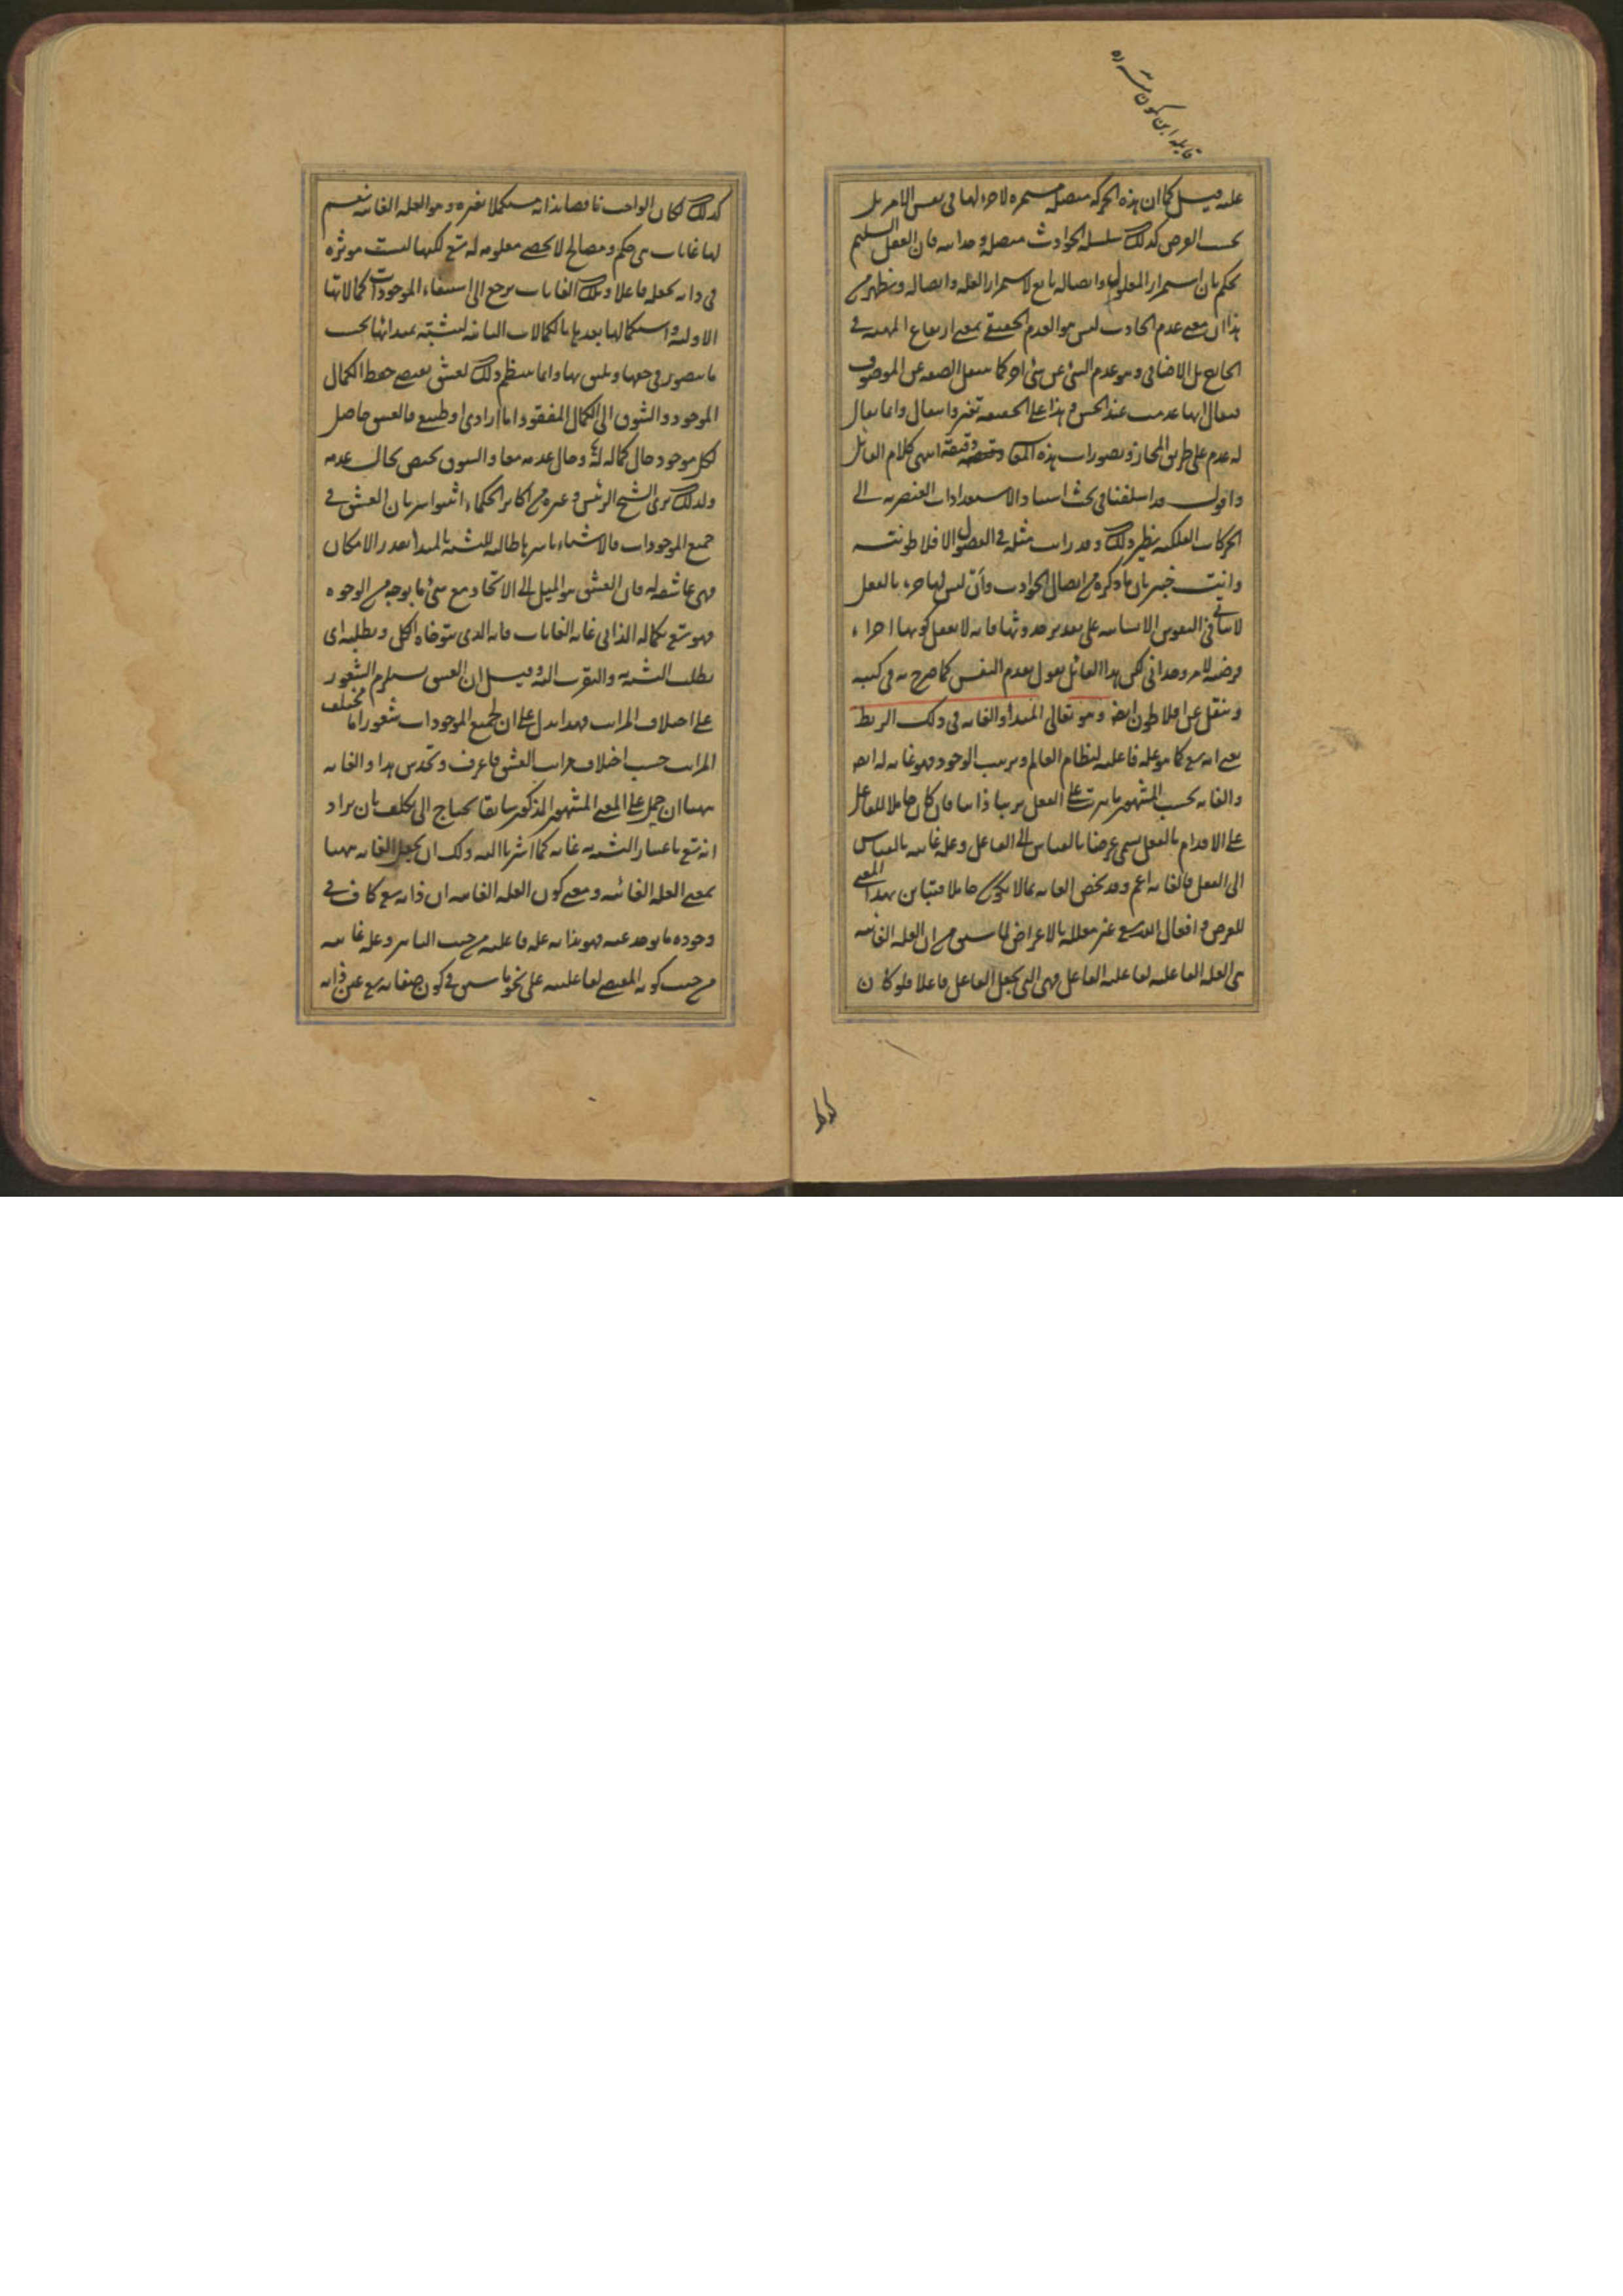 علیه قیل کما ان هذه الحرکة متصلة مستمرة لا جزء لها فی نفس الامر بل
بحسب الفرض کذلک سلسلة الحوادث متصلة وحدانیة فان العقل السلیم
یحکم بان استمرار المعلول واتصاله تابع لاستمرار العلة واتصاله ویظهر من
هذا ان معنی عدم الحادث لیس هو العدم الحقیقی بمعنی ارتفاع المهیة فی
الخارج بل الاضافی وهو عدم الشئ عن شئ آخر کما ینتقل الصفة عن الموصوف
فیقال انها عدمت عند الحس وهذا علی الحقیقة تغیر وانتقال وانما یقال
له عدم علی طریق المجاز وتصورات هذه دقیقة انتهی کلام القائل
واقول قد اسلفنا فی بحث استناد الاستعدادات العنصریة الی
الحرکات الفلکیة نظیر ذلک وقد رأیت مثله فی الفصول الافلاطونیة
وانت خبیر بان ما ذکره من اتصال الحوادث وأن لیس لها جزء بالفعل
لا یتأتی فی النفوس الانسانیة علی تقدیر حدوثها فانه لا یعقل کونها اجزاء
فرضیة لامر وحدانی لکن هذا القائل یقول بقدم النفس کما صرح به فی کتبه
وینقل عن افلاطون ایضا وهو تعالی المبدأ والغایة فی ذلک الربط
یعنی انه تع کما هو علة فاعلیة لنظام العالم وترتیب الوجود فهو غایة له ایضا
والغایة بحسب المشهور ما یترتب علی الفعل ترتبا ذاتیا فان کان حاملا للفاعل
علی الاقدام بالفعل سمی غرضا بالقیاس الی الفاعل وعلة غائیة بالقیاس
الی الفعل فالغایة اعم وقد یخص الغایة بما لا یکون حاملا فتباین بهذا المعنی
للغرض وافعال الله تع غیر معللة بالاغراض لما تبین من ان العلة الغائیة
هی العلة الفاعلیة لفاعلیة الفاعل فهی التی یجعل الفاعل فاعلا فلو کان
کذلک
کذلک لکان الواجب ناقصا بذاته مستکملا بغیره وهو العلة الغائیة نعم
لها غایات هی حکم ومصالح لا تحصی معلومة له تع لکنها لیست موثرة
فی ذاته بجعله فاعلا وتلک الغایات یرجع الی استیفاء الموجودات کمالاتها
الاولیة واستکمالها بعدها بالکمالات الثانیة لیتشبه بمبدأها بحسب
ما یتصور فی حقها ویلیق بها وانما ینتظم ذلک لعشق یقتضی حفظ الکمال
الموجود والشوق الی الکمال المفقود اما ارادی او طبیعی فالعشق حاصل
لکل موجود حال کماله له وحال عدمه معا والشوق یختص بحال عدمه
ولذلک تری الشیخ الرئیس وغیره من اکابر الحکماء اثبتوا سریان العشق فی
جمیع الموجودات فالاشیاء باسرها طالبة للتشبه بالمبدأ بقدر الامکان
فهی عاشقة له فان العشق هو المیل الی الاتحاد مع شئ ما بوجه من الوجوه
فهو تع بکماله الذاتی غایة الغایات فانه الذی یتوخاه الکل ویطلبه ای
یطلب التشبه والتقرب الیه وقیل ان العشق یستلزم الشعور
علی اختلاف المراتب فهذا یدل علی ان لجمیع الموجودات شعورا ما مختلف
المراتب حسب اختلاف مراتب العشق فاعرف وتحدس هذا والغایة
ههنا ان حمل علی المعنی المشهور المذکور سابقا یحتاج الی تکلف بان یراد
انه تع باعتبار التشبه به غایة کما اشرنا الیه ولک ان تجعل الغایة ههنا
بمعنی العلة الغائیة ومعنی کون العلة الغائیة ان ذاته تع کاف فی
وجوده ما یوجد عنه فهو بذاته علة فاعلیة من حیث التاثیر وعلة غائیة
من حیث کونه المقتضی لفاعلیته علی نحو ما سبق فی کون صفاته تع عین ذاته